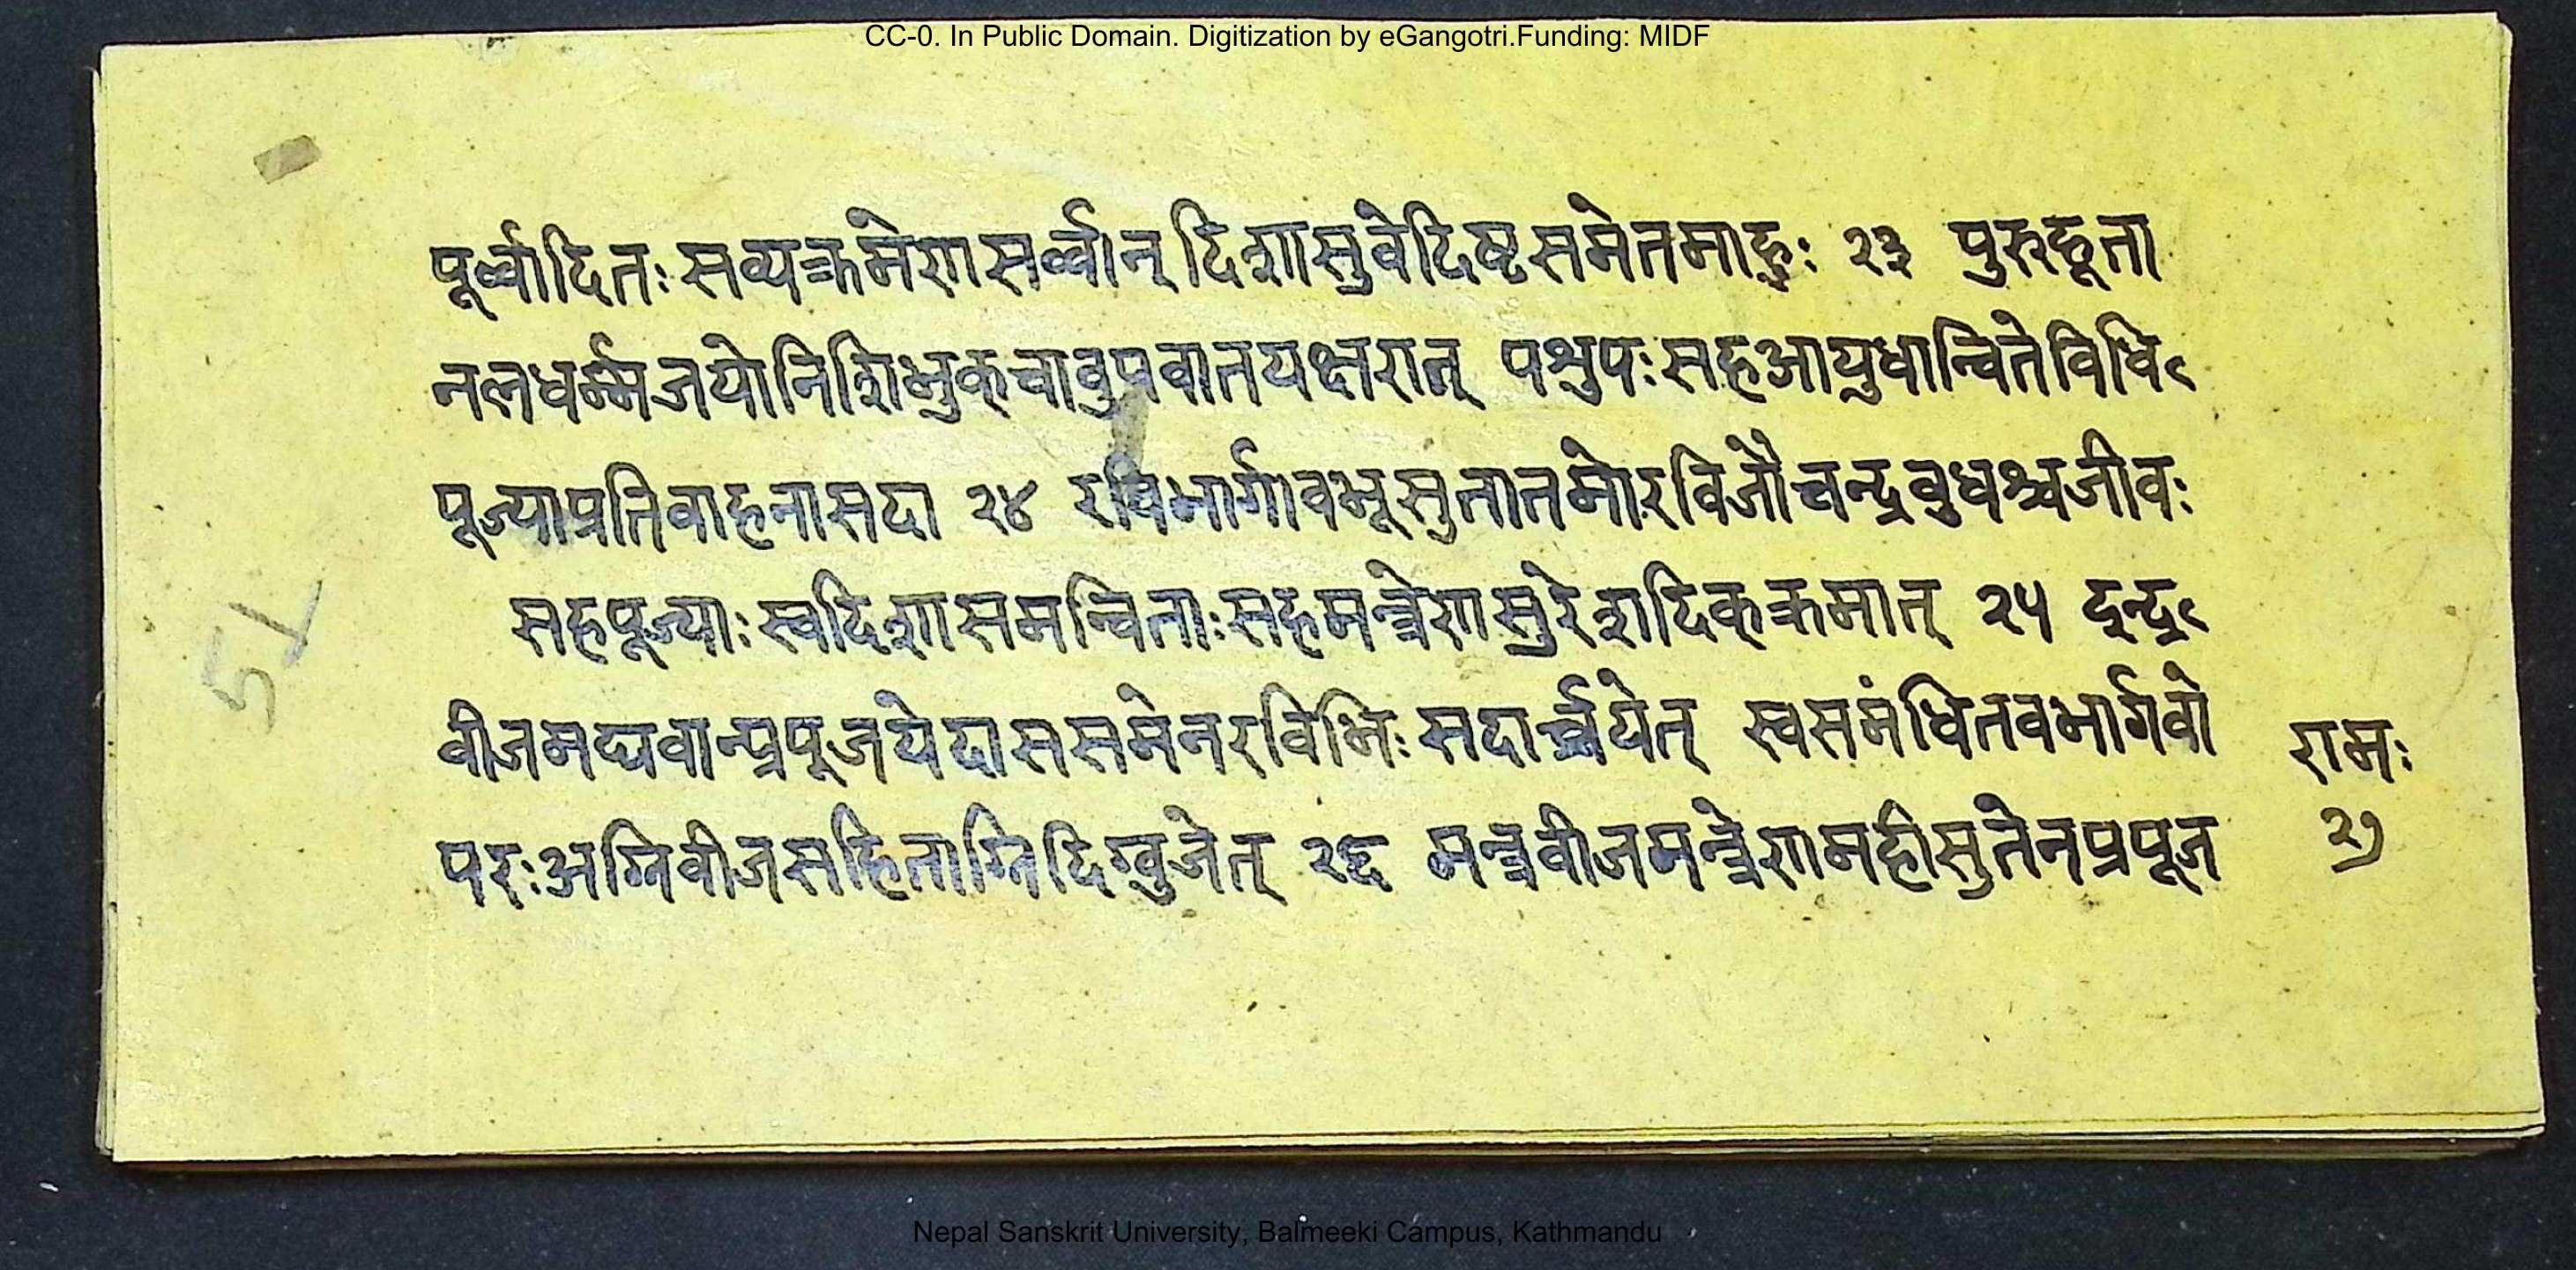 CC-0. In Public Domain. Digitization by eGangotri.Funding: MIDF
पूर्व्वादितः सव्यक्रमेणसर्व्वान् दिशासुवेदिष्टसमेतमाहुः २३ पुरुहूता
नलधर्म्मजयोनिशिभुक्चावुपवातयक्षरात् पशुपः सहआयुधान्वितेविधि
पूज्याप्रतिवाहनासदा २४ रविभार्गावभूसुतातमोरविजौचन्द्रबुधश्चजीवः
सहपूज्याः स्वदिशासमन्विताः सहमन्त्रेणसुरेशदिक्क्रमात् २५ द्वन्द्व
वीजमघवान्प्रपूजयेदाससमेनरविभिः सदार्च्चयेत् स्वसमंधितवभार्गवो
परः अग्निवीजसहिताग्निदिग्युजेत् २६ मन्त्रवीजमन्त्रेणमहीसुतेनप्रपूज
रामः
२७
51
Nepal Sanskrit University, Balmeeki Campus, Kathmandu